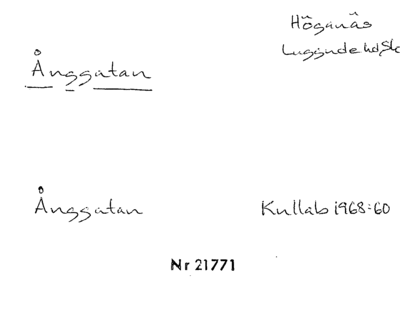 Höganäs
Luggude hd Sk
Ånggatan
Ånggatan Kullab 1968:60
Nr 21771